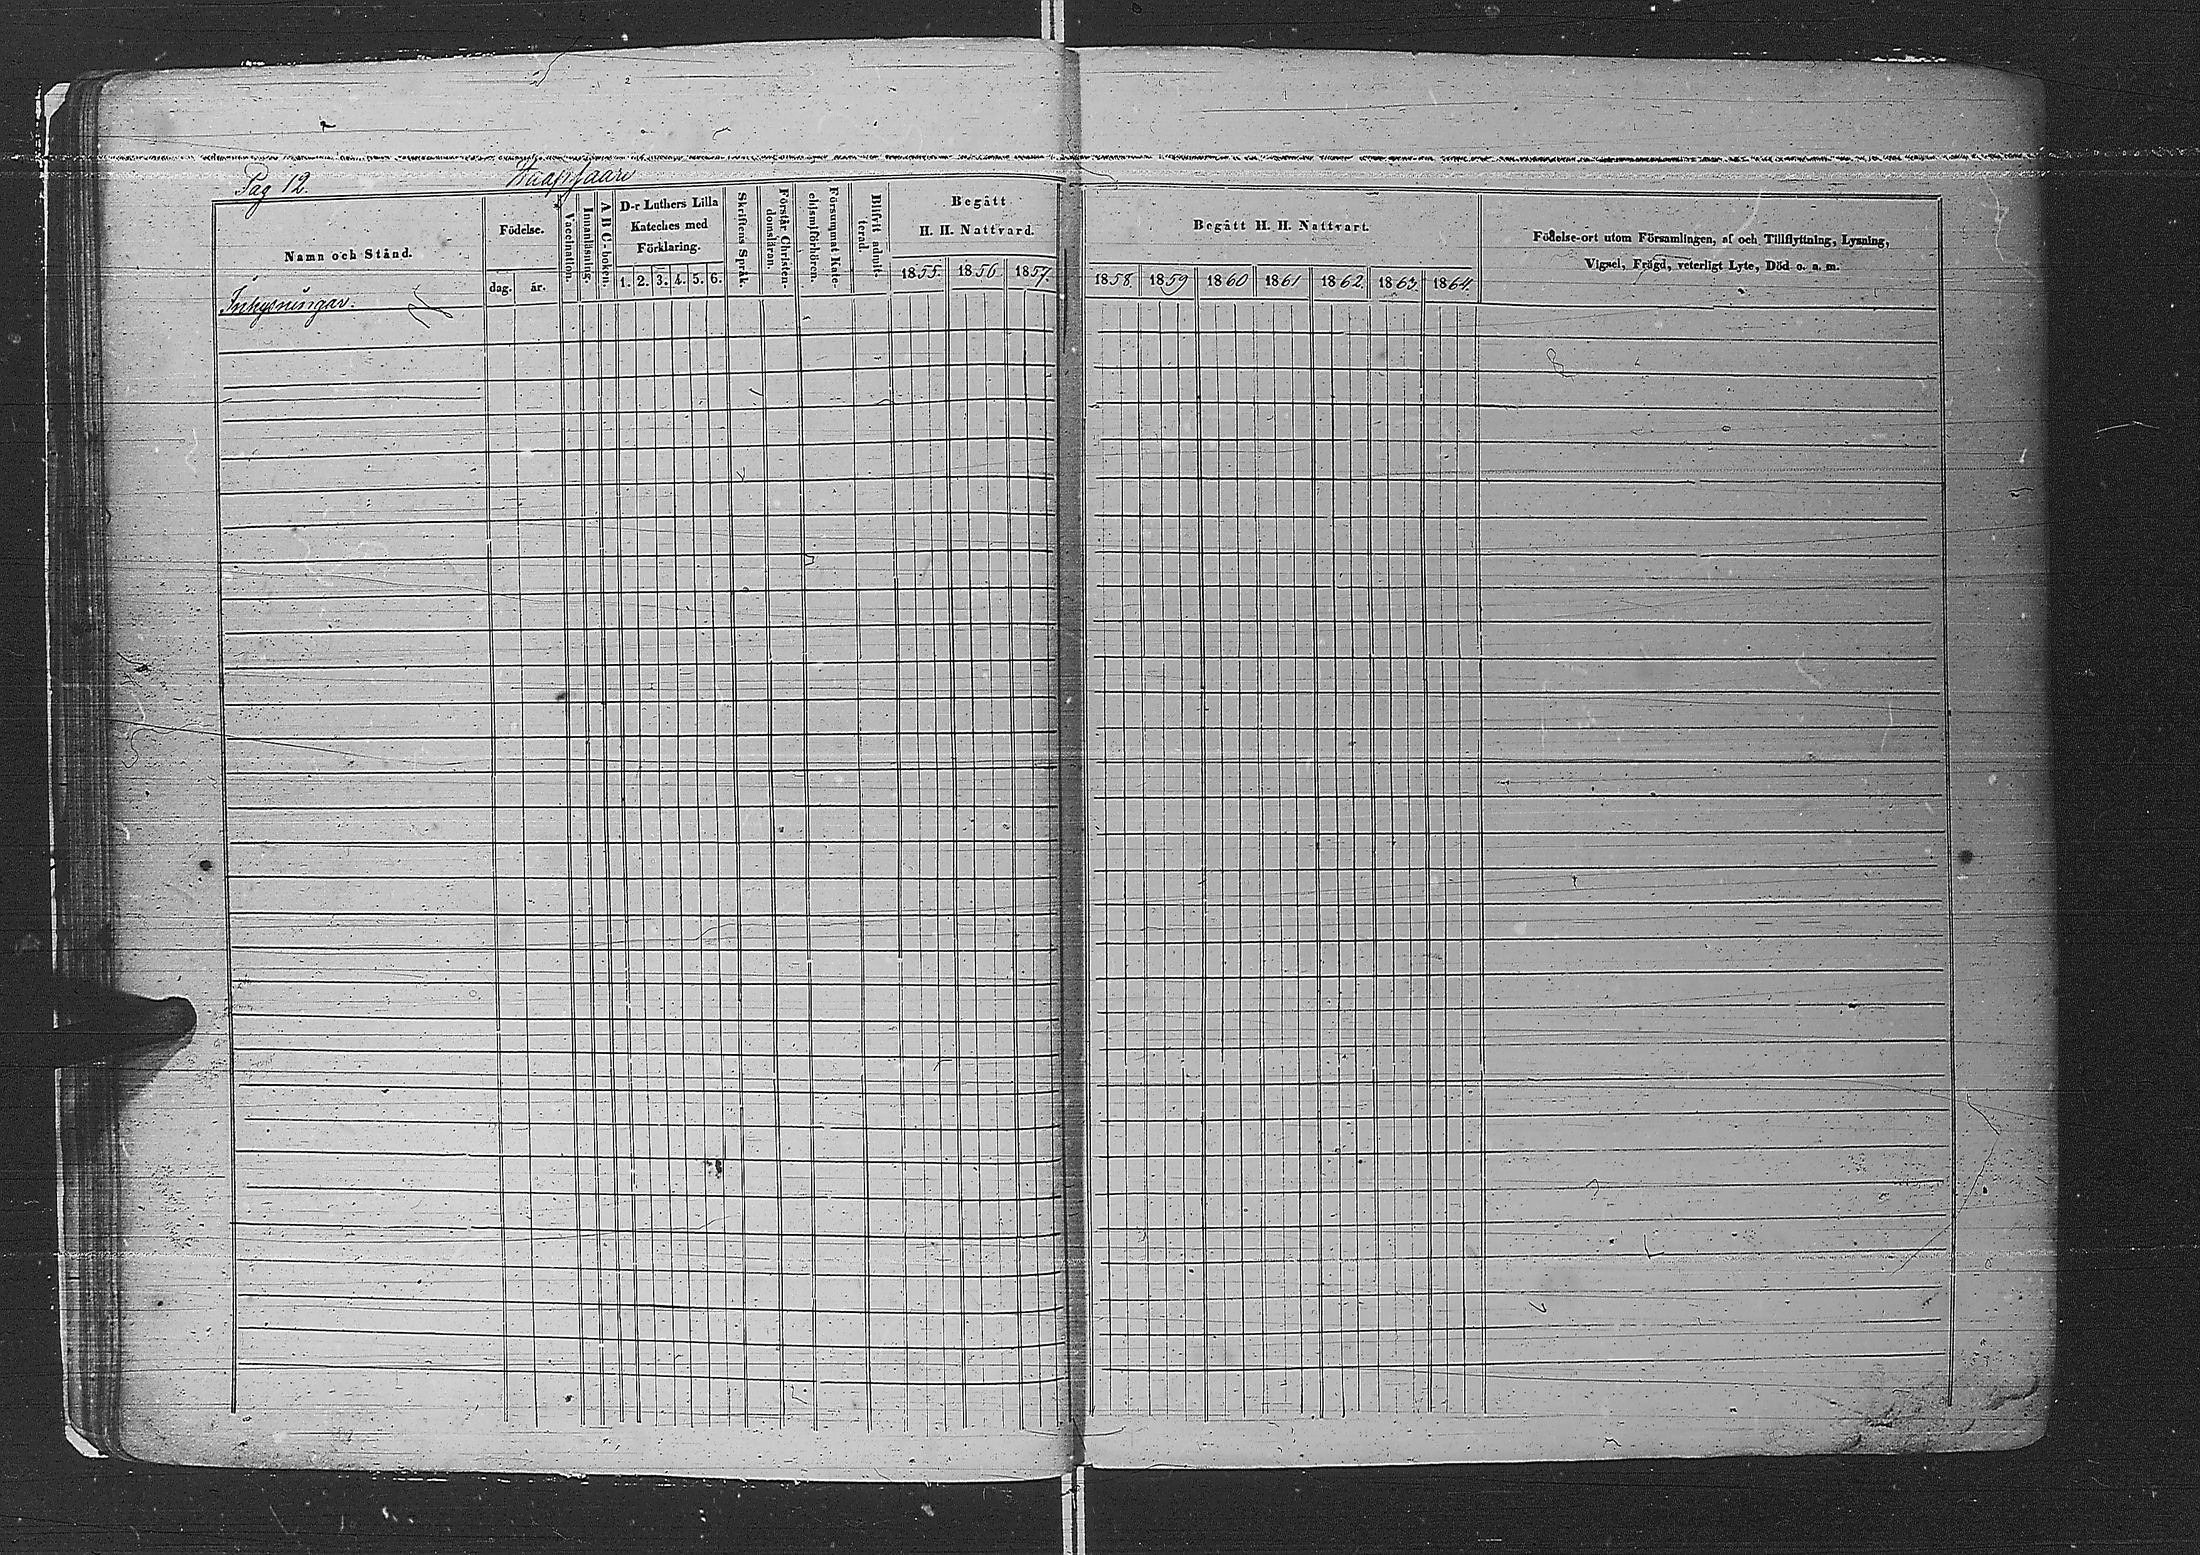 Pag 12.
Namn och Stånd.
Födelse.
dag. år.
Vaccination.
Innanläsning.
A B C-boken.
D-r Luthers Lilla
Kateches med
Förklaring.
1. 2. 3. 4. 5. 6.
Skriftens Språk.
Förstår Christen-
domsläran.
Försummat Kate-
chismiförhören.
Blifvit admit-
terad.
Begått
H. H. Nattvard.
1855. 1856. 1857.
Begått H. H. Nattvart.
1858. 1859 1860 1861 1862. 1863. 1864.
Födelse-ort utom Församlingen, af och Tillflyttning, Lysning,
Vigsel, Frägd, veterligt Lyte, Död o. a. m.
Inhysningar.